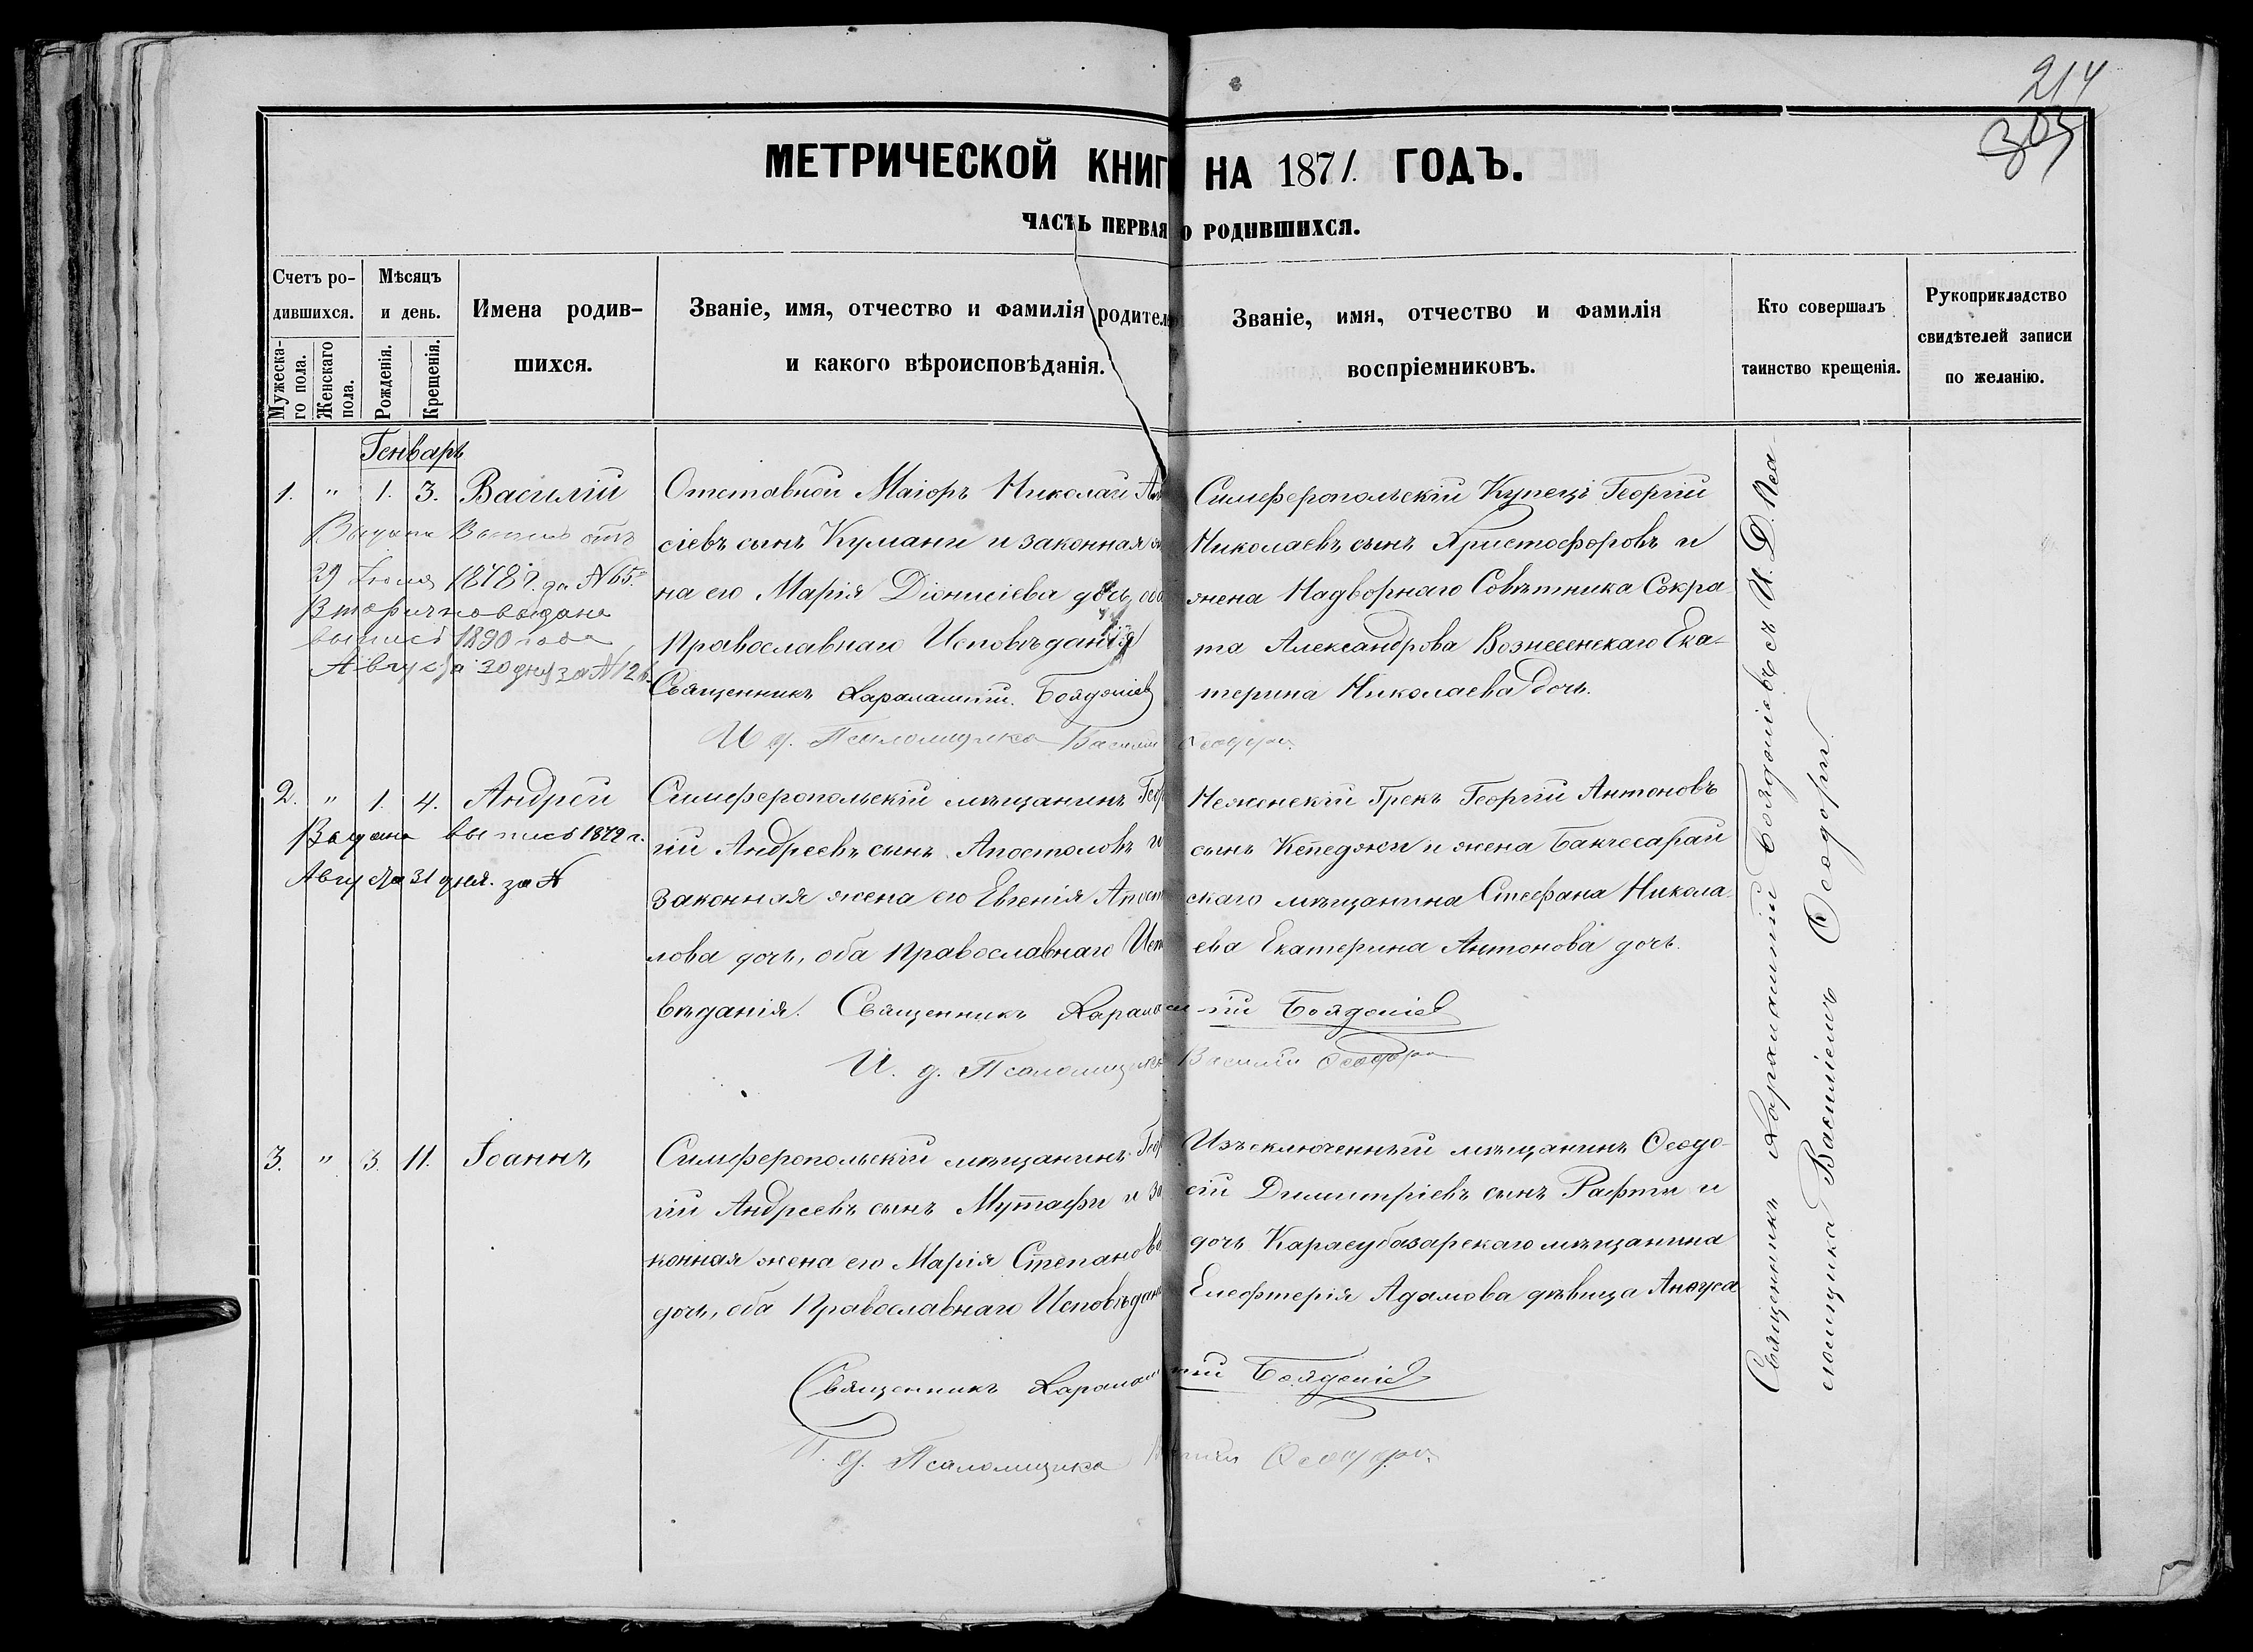 214
303
МЕТРИЧЕСКОЙ КНИГ НА 1871. ГОДЪ.
ЧАСТЬ ПЕРВАЯ О РОДИВШИХСЯ.
Счетъ ро-
дившихся.
Мужеска-
го пола.
Женскаго
пола.
Мѣсяцъ
и день.
Рожденія.
Крещенія.
Имена родив-
шихся.
Званіе, имя, отчество и фамилія родител
и какого вѣроисповѣданія.
Званіе, имя, отчество и фамилія
воспріемниковъ.
Кто совершалъ
таинство крещенія.
Рукоприкладство
свидѣтелей записи
по желанію.
Генварь
1. " 1. 3. Василій
Выдана Выпись отъ
29 Іюля 1878 г. за №65.
Вторично выдана
выпись 1890 года
Августа 30 дня за №126
Отставной Маіоръ Николай
сіевъ сынъ Кумани и законная
на его Марія Діонисіева дочь,
Православнаго Исповѣданія
Священникъ Харалампій Бояджіев
И д. Псаломщика Василій Ѳеодори
Симферопольскій Купецъ Георгій
Николаевъ сынъ Христофоровъ и
жена Надворнаго Совѣтника Сокра
та Александрова Вознесенскаго Ека-
терина Николаева дочь.
2. " 1. 4. Андрей
Выдана выпись 1879 г.
Августа 31 дня. за №
Симферопольскій мѣщанинъ Геор
гій Андреевъ сынъ Апостоловъ и
законная жена его Евгенія Апост
лова дочь, оба Православнаго Исп
вѣданія. Священникъ Харалампій Бояджіев
И. д. Псаломщика Василій Ѳеодори
Неженскій Грекъ Георгій Антоновъ
сынъ Кепеджи и жена Бакчесарай
скаго мѣщанина Стефана Никола-
ева Екатерина Антонова дочь.
3. " 3. 11. Іоаннъ
Симферопольскій мѣщанинъ Геор
гій Андреевъ сынъ Мутафи и за
конная жена его Марія Степанова
дочь, оба Православнаго Исповѣдан
Священникъ Харалампій Бояджіев
И. д. Псаломщика Ѳеодори
Изъключенный мѣщанинъ Ѳеодо-
сій Димитріевъ сынъ Рафти и
дочь Карасубазарскаго мѣщанина
Елефтерія Адамова дѣвица
Священникъ Харалампій Бояджіевъ съ И. Д. Пса-
ломщика Василіемъ Ѳеодори.